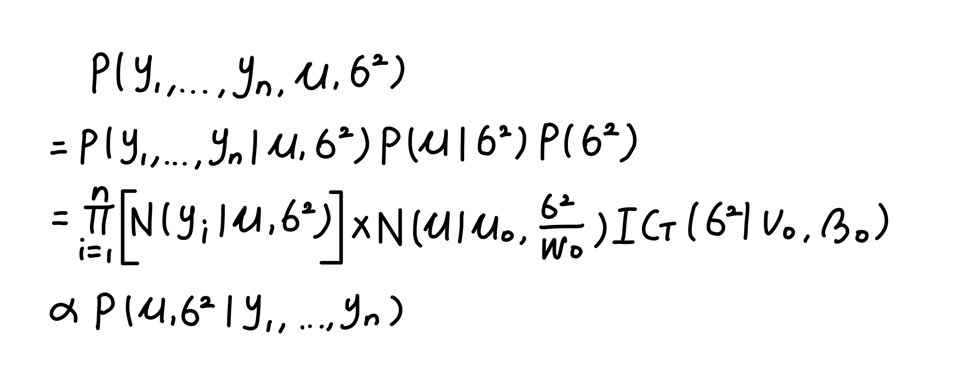 P(y₁,...,yₙ,μ,σ²)
=P(y₁,...,yₙ|μ,σ²)P(μ|σ²)P(σ²)
=∏ᵢ₌₁ⁿ[N(yᵢ|μ,σ²)]×N(μ|μ₀,σ²/w₀)IG(σ²|ν₀,β₀)
∝P(μ,σ²|y₁,...,yₙ)